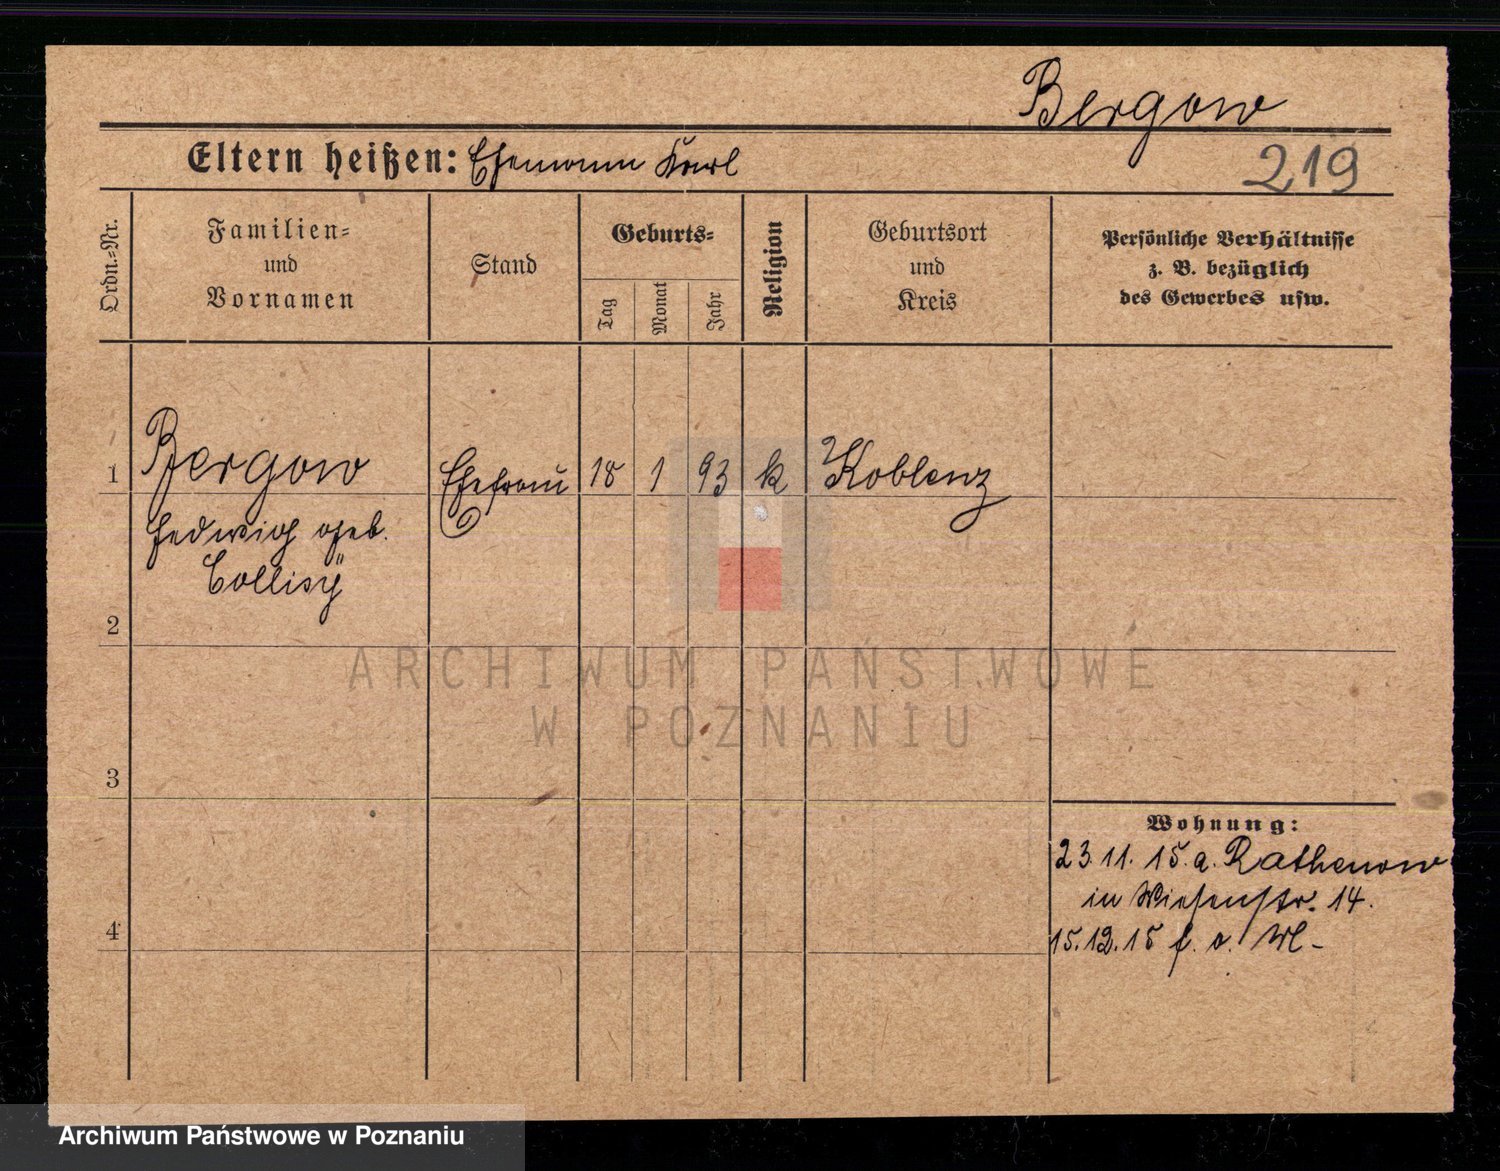 Bergow
Eltern heißen: Ehemann Karl
219
Ordn.-Nr.
Familien-
und
Vornamen
Stand
Geburts-
Tag
Monat
Jahr
Religion
Geburtsort
und
Kreis
Persönliche Verhältnisse
z. B. bezüglich
des Gewerbes usw.
1 Bergow Ehefrau 18 1 93 k Koblenz
Hedwig geb.
Collisÿ
2
ARCHIWUM PAŃSTWOWE
W POZNANIU
3
Wohnung:
23.11.15. a. Rathenow
in Wiesenstr. 14.
4
15.12.15 f. o.
Archiwum Państwowe w Poznaniu